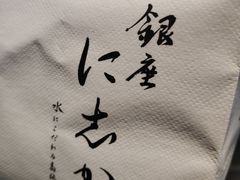 銀座
に志か
水にこだわる高級